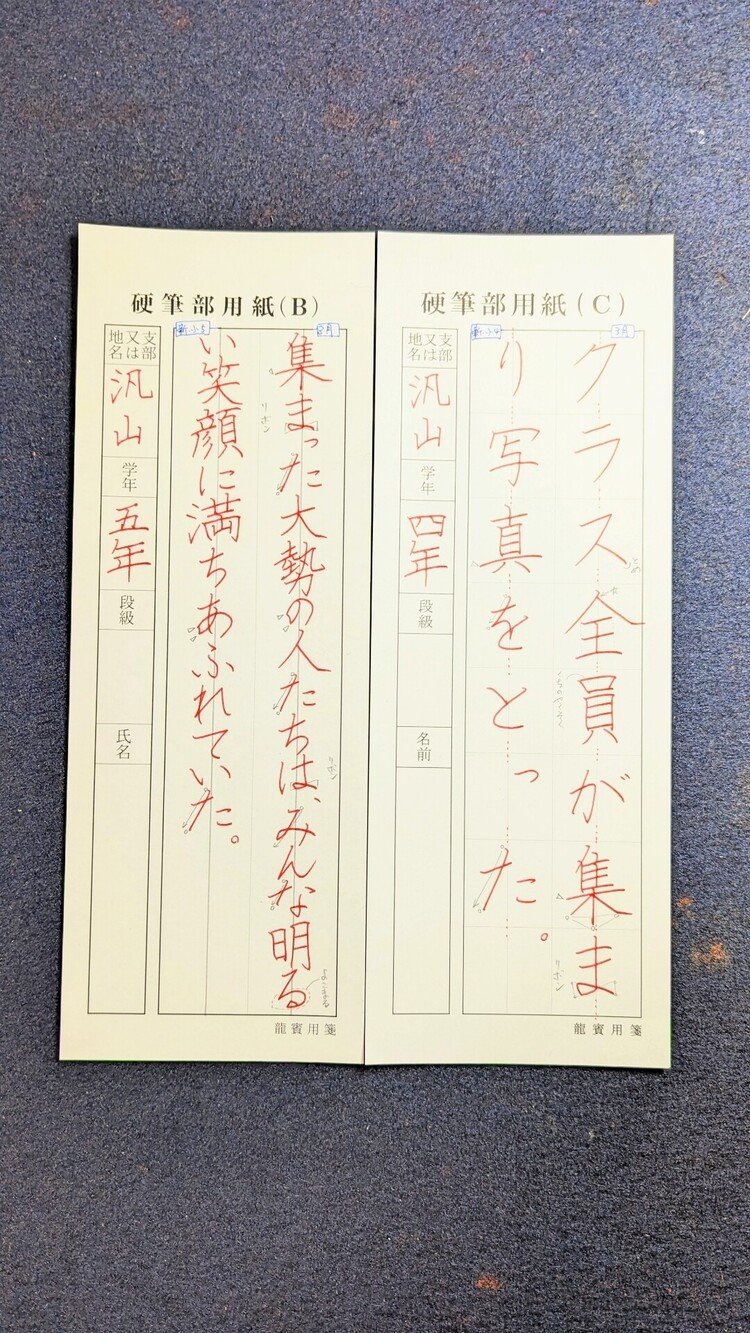 硬筆部用紙(C)
3月
新小4
クラス全員が集ま
り写真をとった。
とめ
リボン
支部又は地名
汎山
学年
四年
段級
名前
龍賓用箋
硬筆部用紙(B)
新小5
集まった大勢の人たちは、みんな明る
い笑顔に満ちあふれていた。
リボン
リボン
よこまる
支部又は地名
汎山
学年
五年
段級
氏名
龍賓用箋